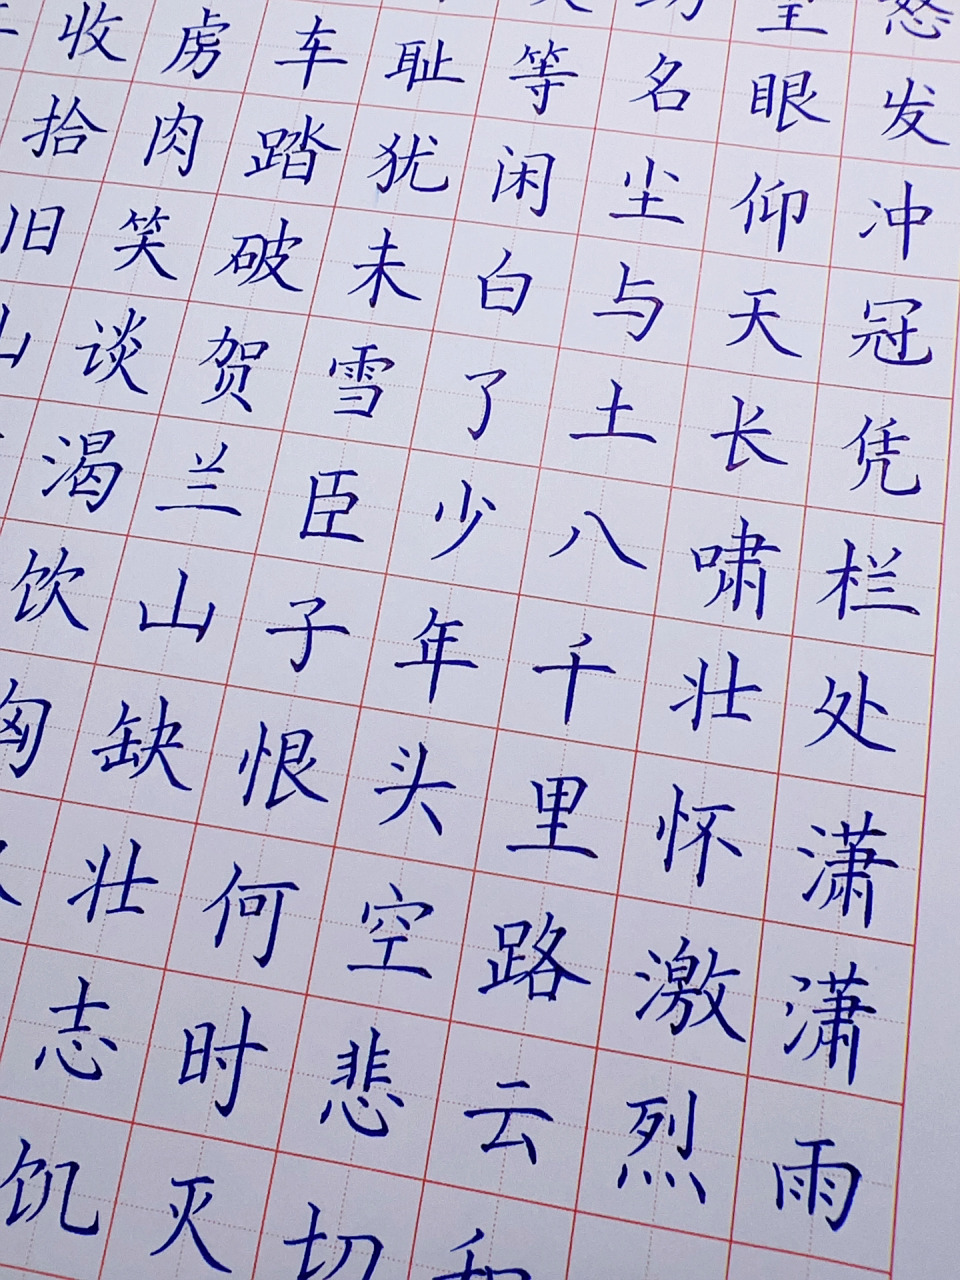 怒发冲冠凭栏处潇潇雨
望眼仰天长啸壮怀激烈
功名尘与土八千里路云和
等闲白了少年头空悲切
耻犹未雪臣子恨何时灭
车踏破贺兰山缺壮志饥
虏肉笑谈渴饮匈
收拾旧山